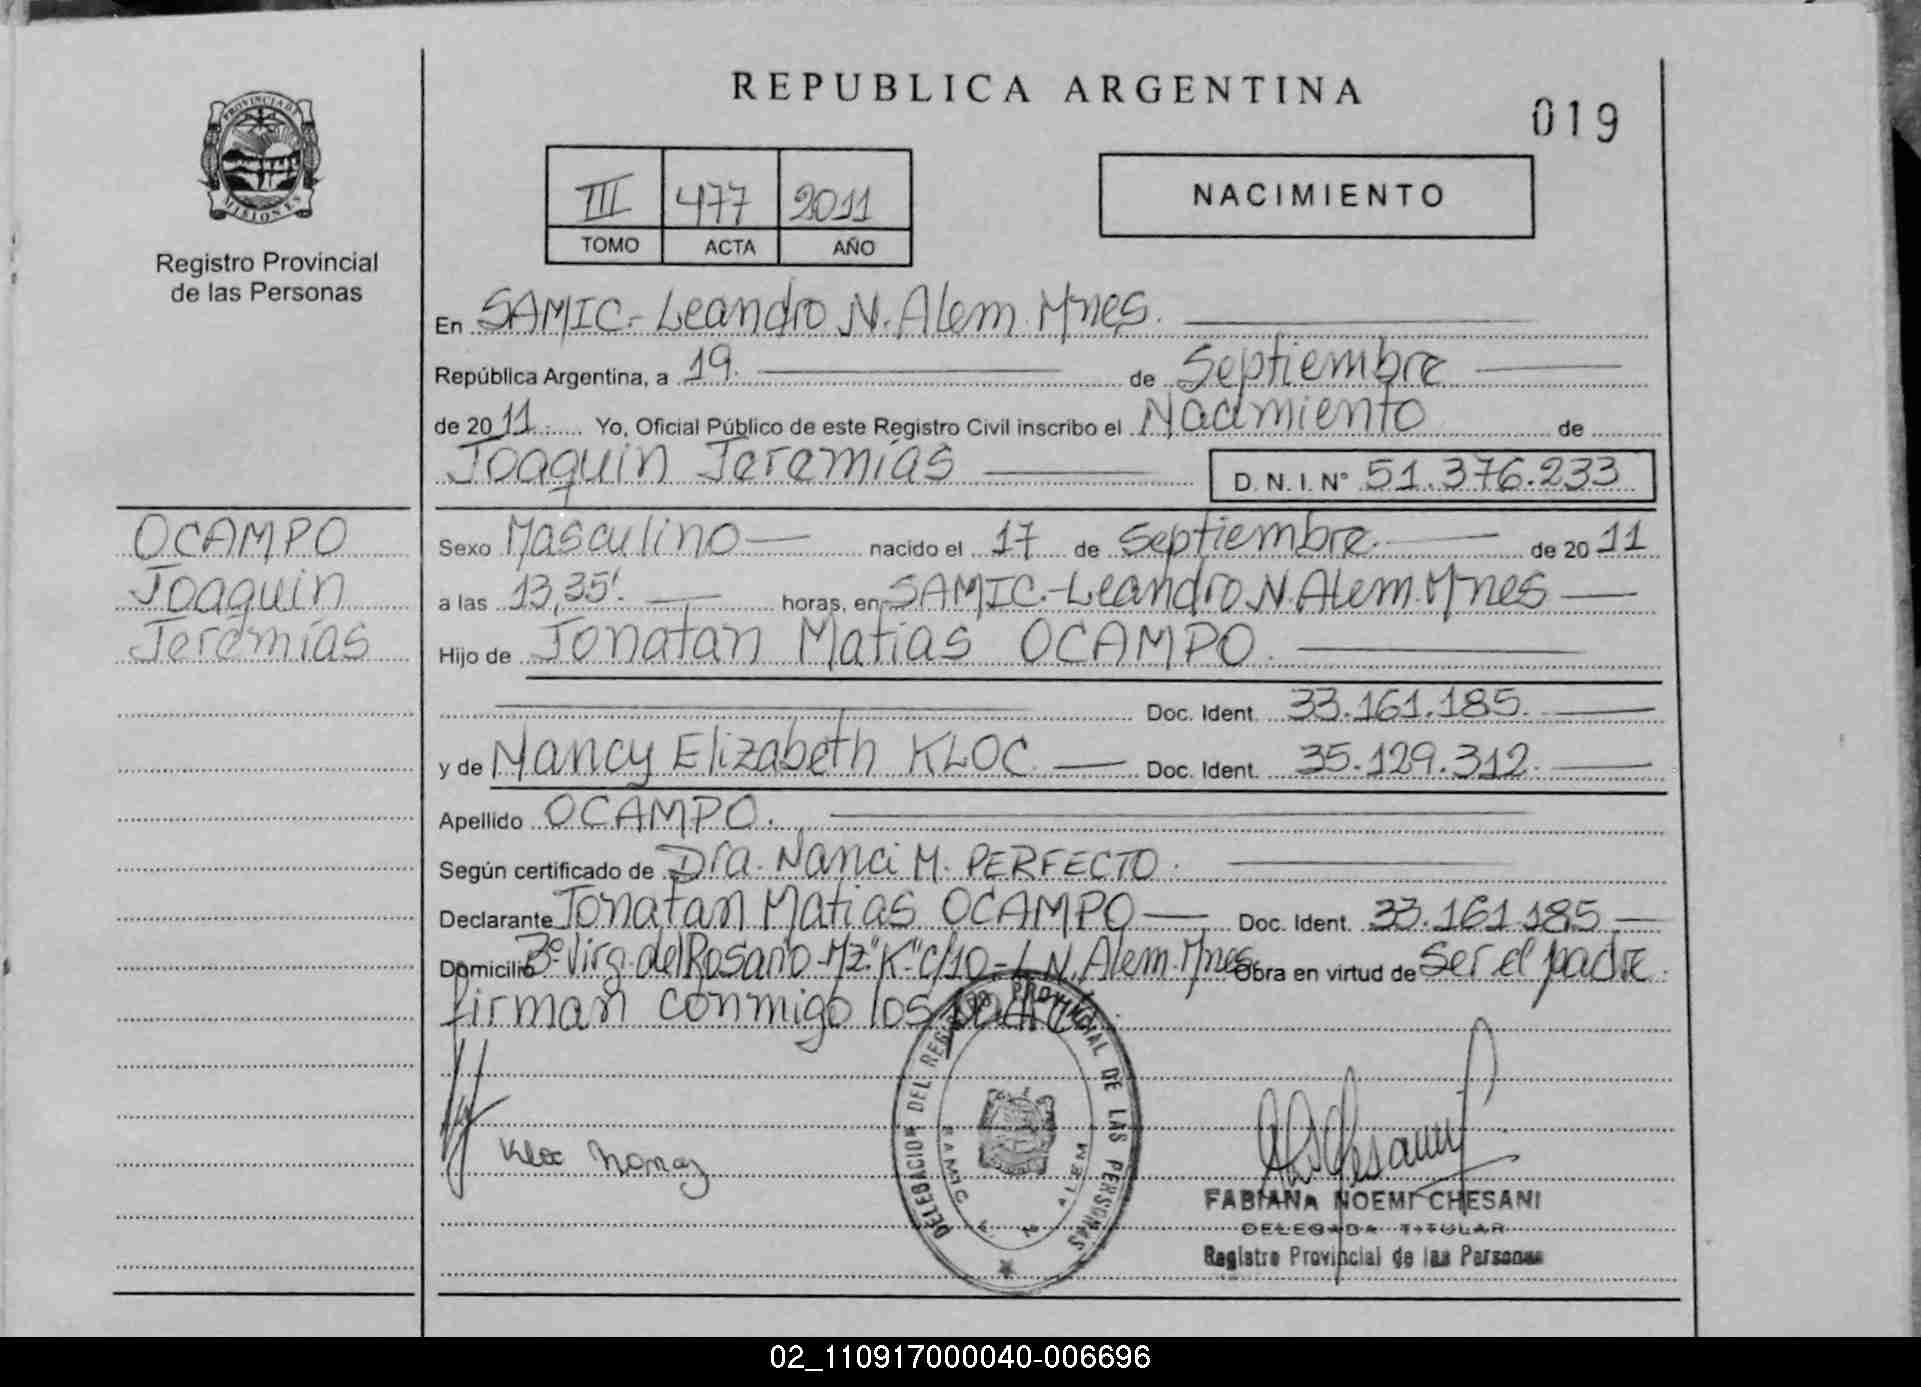 REPUBLICA ARGENTINA
019
PROVINCIA DE
MISIONES
Registro Provincial
de las Personas
III 477 2011
TOMO ACTA AÑO
NACIMIENTO
En SAMIC.- Leandro N. Alem. Mnes.
República Argentina, a 19. de Septiembre
de 2011. Yo, Oficial Público de este Registro Civil inscribo el Nacimiento de
Joaquin Jeremías D. N. I. N° 51.376.233
OCAMPO
Joaquin
Jeremías
Sexo Masculino nacido el 17 de Septiembre. de 2011
a las 13,35'. horas, en SAMIC.-Leandro N. Alem. Mnes
Hijo de Jonatan Matias OCAMPO.
Doc. Ident. 33.161.185.
y de Nancy Elizabeth KLOC. Doc. Ident. 35.129.312.
Apellido OCAMPO.
Según certificado de Dra. Nanci M. PERFECTO.
Declarante Jonatan Matias OCAMPO Doc. Ident. 33.161.185
Domicilio B° Virg. del Rosario-Mz."K" c/10-L N. Alem. Mnes Obra en virtud de ser el padre.
firman conmigo los padres.
DELEGACION DEL REGISTRO PROVINCIAL DE LAS PERSONAS
SAMIC L. N. ALEM
Kloc Nancy
FABIANA NOEMI CHESANI
DELEGADA TITULAR
Registro Provincial de las Personas
02_110917000040-006696